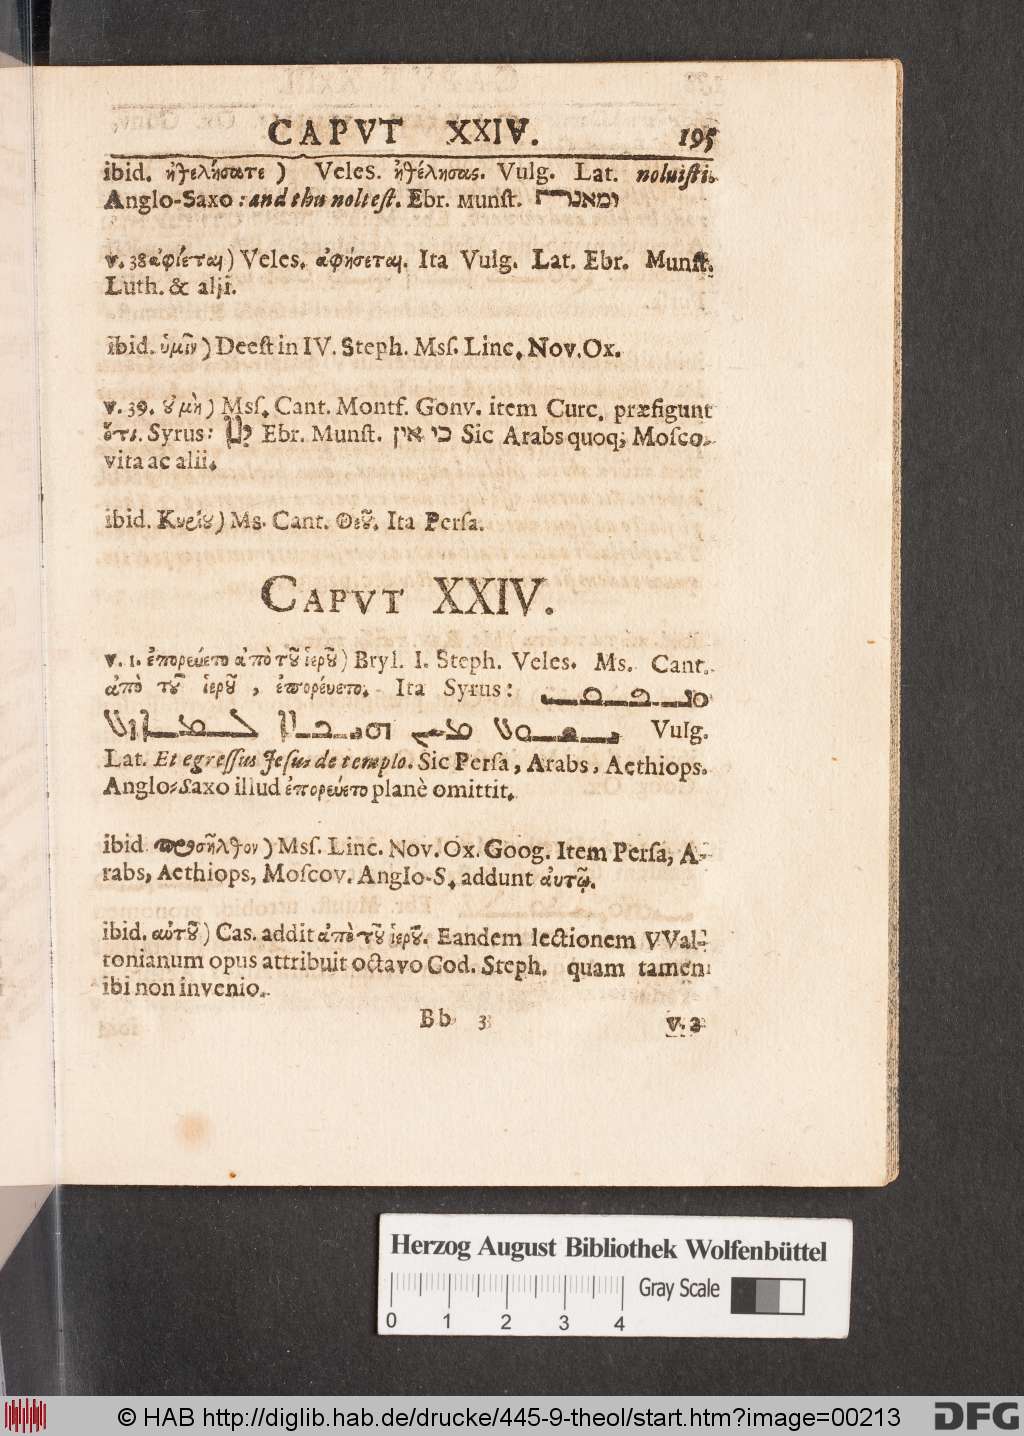 CAPVT XXIV. 195
ibid. ἠθελήσατε) Veles. ἠθέλησας. Vulg. Lat. noluisti.
Anglo-Saxo: and thu noltest. Ebr. Munſt.
v. 38 ἀφίεται) Veles. ἀφήσεται. Ita Vulg. Lat. Ebr. Munſt.
Luth. & alji.
ibid. ὑμῖν) Deeſt in IV. Steph. Msſ. Linc. Nov. Ox.
v. 39. ȣ μὴ) Msſ. Cant. Montf. Gonv. item Curc. præfigunt
ὅτι. Syrus: Ebr. Munſt. כי אין Sic Arabs quoq; Moſco-
vita ac alii.
ibid. Κυρίȣ) Ms. Cant. Θεȣ͂. Ita Perſa.
CAPVT XXIV.
v. 1. ἐπορεύετο ἀπὸ τȣ͂ ἱερȣ͂) Bryl. I. Steph. Veles. Ms. Cant.
ἀπὸ τȣ͂ ἱερȣ͂, ἐπορέυετο. Ita Syrus:
Vulg.
Lat. Et egreſſus Jeſus de templo. Sic Perſa, Arabs, Aethiops.
Anglo-Saxo illud ἐπορεύετο planè omittit.
ibid προσῆλθον) Msſ. Linc. Nov. Ox. Goog. Item Perſa, A-
rabs, Aethiops, Moſcov. Anglo-S. addunt ἀυτῷ.
ibid. αὐτȣ͂) Cas. addit ἀπὸ τȣ͂ ἱερȣ͂. Eandem lectionem VVal-
tonianum opus attribuit octavo Cod. Steph. quam tamen
ibi non invenio.
Bb 3 v. 2
Herzog August Bibliothek Wolfenbüttel
Gray Scale
0 1 2 3 4
© HAB http://diglib.hab.de/drucke/445-9-theol/start.htm?image=00213 DFG